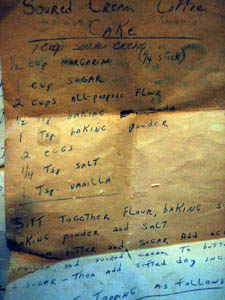 Soured Cream Coffee
Cake
1 cup sour cream
1/2 cup margarine (1/4 stick)
1 cup sugar
2 cups all-purpose flour
1/2 tsp baking soda
1 tsp baking powder
2 eggs
1/4 tsp salt
1 tsp vanilla
Sift together flour, baking s
baking powder and salt
butter and sugar Add
vanilla and soured cream to butt
sugar - then add sifted dry ing
Topping as follows